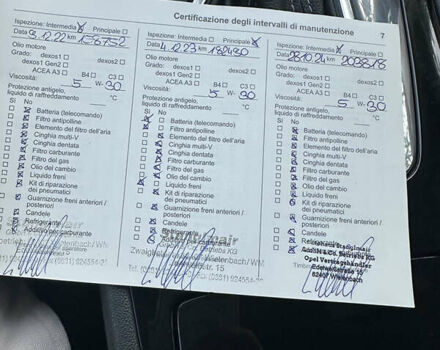 Certificazione degli intervalli di manutenzione
7
Ispezione: Intermedia Principale
Data 9.12.22 km 136752
Olio motore
Grado: dexos1 dexos2
dexos1 Gen2
ACEA A3 B4 C3
Viscosità: 5 W- 30
Protezione antigelo,
liquido di raffreddamento °C
Sì No
Batteria (telecomando)
Filtro antipolline
Elemento del filtro dell'aria
Cinghia multi-V
Cinghia dentata
Filtro carburante
Filtro del gas
Olio del cambio
Liquido freni
Kit di riparazione
dei pneumatici
Guarnizione freni anteriori /
posteriori
Candele
Refrigerante
Additivo nel carburante
Ispezione: Intermedia Principale
Data 4.12.23 km
Olio motore
Grado: dexos1 dexos2
dexos1 Gen2
ACEA A3 B4 C3
Viscosità: 5 W- 30
Protezione antigelo,
liquido di raffreddamento °C
Sì No
Batteria (telecomando)
Filtro antipolline
Elemento del filtro dell'aria
Cinghia multi-V
Cinghia dentata
Filtro carburante
Filtro del gas
Olio del cambio
Liquido freni
Kit di riparazione
dei pneumatici
Guarnizione freni anteriori /
posteriori
Candele
Ispezione: Intermedia Principale
Data 28.10.24 km 203818
Olio motore
Grado: dexos1 dexos2
dexos1 Gen2
ACEA A3 B4 C3
Viscosità: 5 W- 30
Protezione antigelo,
liquido di raffreddamento °C
Sì No
Batteria (telecomando)
Filtro antipolline
Elemento del filtro dell'aria
Cinghia multi-V
Cinghia dentata
Filtro carburante
Filtro del gas
Olio del cambio
Liquido freni
Kit di riparazione
dei pneumatici
Guarnizione freni anteriori /
posteriori
Candele
Opel Vertragshändler
82407 Wielenbach